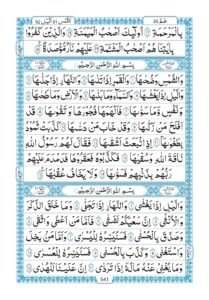 الشمس 91 الليل 92
عم 30
بِالْمَرْحَمَةِ ۝ اُولٰٓئِكَ اَصْحٰبُ الْمَيْمَنَةِ ۝ وَالَّذِيْنَ كَفَرُوْا
بِاٰيٰتِنَا هُمْ اَصْحٰبُ الْمَشْـَٔمَةِ ۝ عَلَيْهِمْ نَارٌ مُّؤْصَدَةٌ ۝
بِسْمِ اللّٰهِ الرَّحْمٰنِ الرَّحِيْمِ
وَالشَّمْسِ وَضُحٰىهَا ۝ وَالْقَمَرِ اِذَا تَلٰىهَا ۝ وَالنَّهَارِ اِذَا جَلّٰىهَا ۝
وَالَّيْلِ اِذَا يَغْشٰىهَا ۝ وَالسَّمَآءِ وَمَا بَنٰىهَا ۝ وَالْاَرْضِ وَمَا طَحٰىهَا ۝
وَنَفْسٍ وَّمَا سَوّٰىهَا ۝ فَاَلْهَمَهَا فُجُوْرَهَا وَتَقْوٰىهَا ۝ قَدْ
اَفْلَحَ مَنْ زَكّٰىهَا ۝ وَقَدْ خَابَ مَنْ دَسّٰىهَا ۝ كَذَّبَتْ ثَمُوْدُ
بِطَغْوٰىهَآ ۝ اِذِ انْۢبَعَثَ اَشْقٰىهَا ۝ فَقَالَ لَهُمْ رَسُوْلُ اللّٰهِ
نَاقَةَ اللّٰهِ وَسُقْيٰهَا ۝ فَكَذَّبُوْهُ فَعَقَرُوْهَا فَدَمْدَمَ عَلَيْهِمْ
رَبُّهُمْ بِذَنْۢبِهِمْ فَسَوّٰىهَا ۝ وَلَا يَخَافُ عُقْبٰهَا ۝
بِسْمِ اللّٰهِ الرَّحْمٰنِ الرَّحِيْمِ
وَالَّيْلِ اِذَا يَغْشٰى ۝ وَالنَّهَارِ اِذَا تَجَلّٰى ۝ وَمَا خَلَقَ الذَّكَرَ
وَالْاُنْثٰٓى ۝ اِنَّ سَعْيَكُمْ لَشَتّٰى ۝ فَاَمَّا مَنْ اَعْطٰى وَاتَّقٰى ۝
وَصَدَّقَ بِالْحُسْنٰى ۝ فَسَنُيَسِّرُهٗ لِلْيُسْرٰى ۝ وَاَمَّا مَنْۢ بَخِلَ
وَاسْتَغْنٰى ۝ وَكَذَّبَ بِالْحُسْنٰى ۝ فَسَنُيَسِّرُهٗ لِلْعُسْرٰى ۝ وَمَا
يُغْنِيْ عَنْهُ مَالُهٗٓ اِذَا تَرَدّٰى ۝ اِنَّ عَلَيْنَا لَلْهُدٰى ۝
541